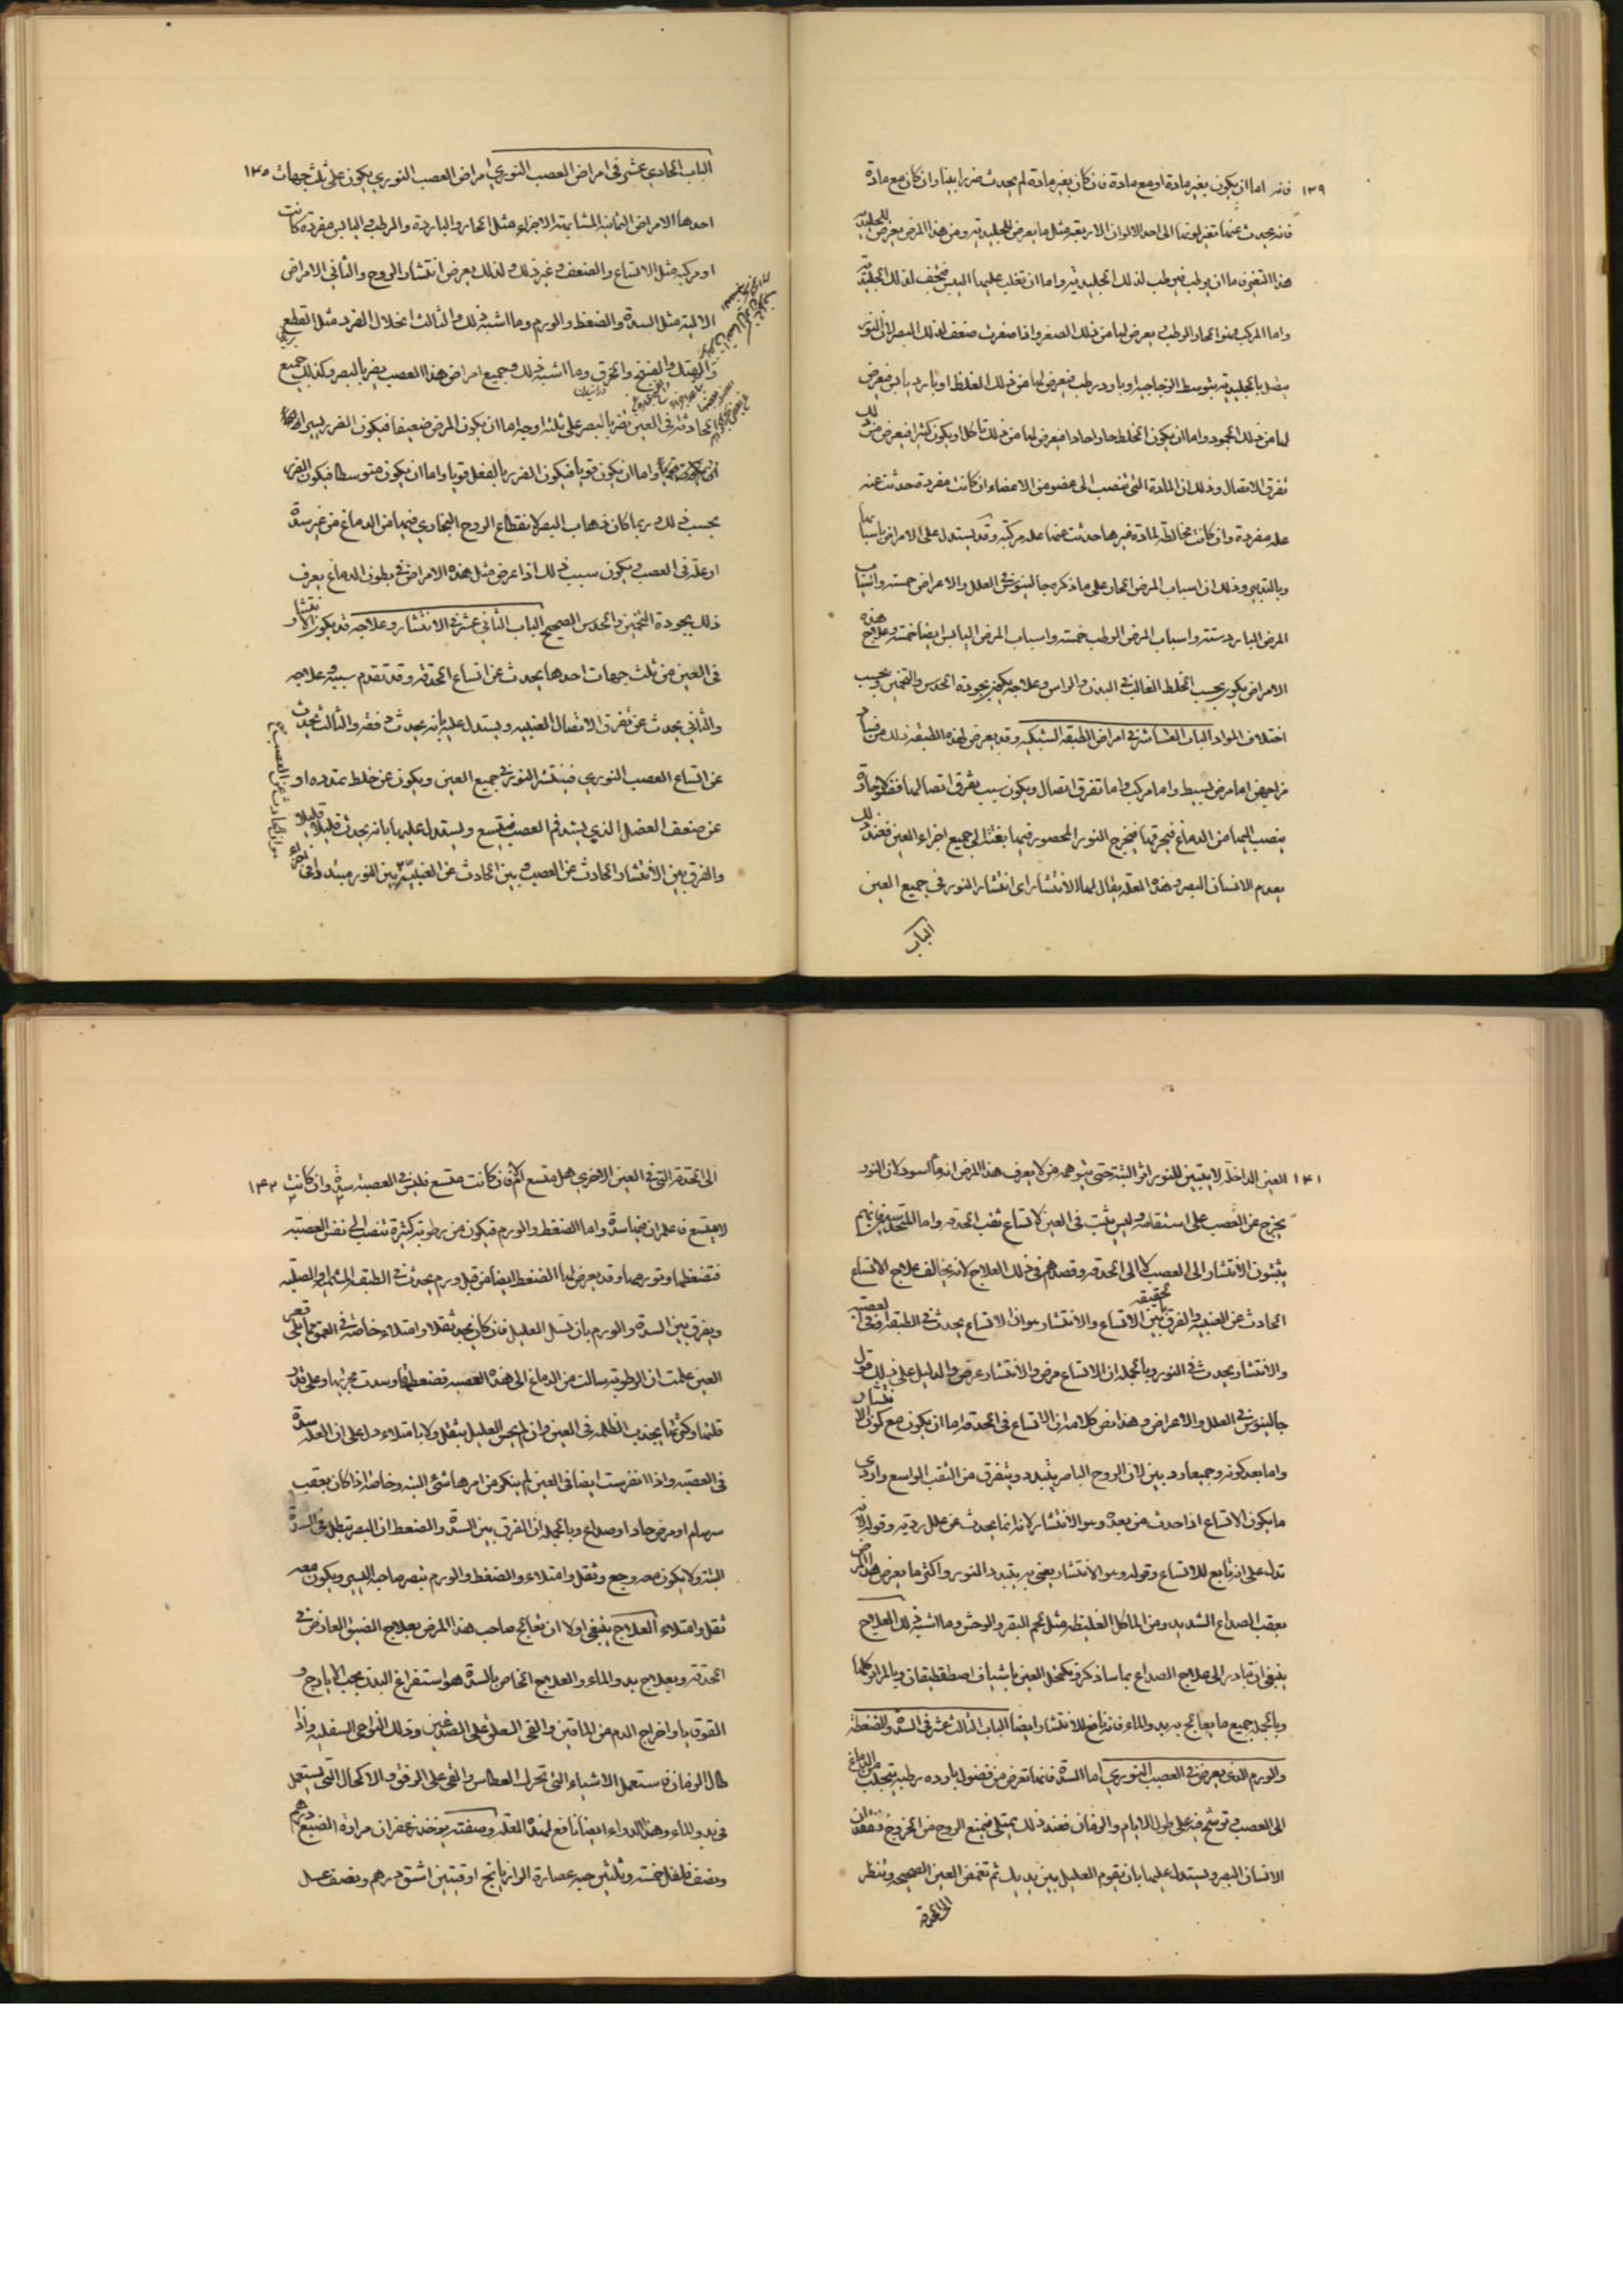 ١٣٩ فانه اما ان يكون بغير مادة او مع مادة فان كان بغير مادة لم يحدث ضررا بينا وان كان مع مادة
فانه يحدث عنها تغير لونها الى احد الالوان الاربعة مثل ما يعرض للجليدية ومن هذا المرض يعرض للجليدية
واما المركب فهو الحار الرطب يعرض لها من ذلك الصغر واذا صغرت ضعف لذلك البصر لان النور
يتصل بالجليدية بتوسط الزجاجية او بارد رطب فيعرض لها من ذلك الغلظ او بارد يابس فيعرض
لها من ذلك الجمود واما ان يكون الخلط حارا حادا فيعرض لها من ذلك تآكل او يكون كثيرا فيعرض من ذلك
تفرق الاتصال وذلك ان المادة التى تنصب الى عضو من الاعضاء ان كانت مفردة حدثت عنه
علة مفردة وان كانت مخالطة لمادة غيرها حدثت عنها علة مركبة وقد يستدل على الامراض باسبابها
وبالتدبير وذلك ان اسباب المرض الحار على ما ذكره جالينوس فى العلل والاعراض خمسة واسباب
المرض البارد ستة واسباب المرض الرطب خمسة واسباب المرض اليابس ايضا خمسة وعلاج هذه
الامراض يكون بحسب الخلط الغالب فى البدن والراس وعلاجه يكون بجودة الحدس والتخمين وبحسب
اختلاف المواد الباب العاشر فى امراض الطبقة الشبكية وقد يعرض لهذه الطبقة ذلك من فساد
مزاجها اما مرض بسيط واما مركب واما تفرق اتصال ويكون سبب تفرق اتصالها
ينصب اليها من الدماغ فيحرقها فيخرج النور المحصور فيها بغتة الى جميع اجزاء العين فعند ذلك
يعدم الانسان البصر وهذه العلة يقال لها الانتشار اى انتشار النور فى جميع العين
الباب
الباب الحادي عشر فى امراض العصب النوري امراض العصب النوري يكون على ثلث جهات ١٤٠
احدها الامراض الثمانية المشابهة الاجزاء مثل الحارة والباردة والرطبة واليابس مفردة كانت
او مركبة مثل الاتساع والضعف وغير ذلك ولذلك يعرض انتشار الروح والثانى الامراض
الالية مثل السدة والضغط والورم وما اشبه ذلك والثالث انحلال الفرد مثل القطع
والهتك والفسخ والخرق وما اشبه ذلك وجميع امراض هذا العصب يضر بالبصر وكذلك جميع
الحادثة فى العين تضر بالبصر على ثلثة اوجه اما ان يكون المرض ضعيفا فيكون الضرر يسيرا
واما ان يكون قويا فيكون الضرر بالفعل قويا واما ان يكون متوسطا فيكون الضرر
بحسب ذلك وربما كان ذهاب البصر لانقطاع الروح البخاري فيها من الدماغ من غير سدة
او علة فى العصب ويكون سبب ذلك اذا عرض مثل هذه الامراض فى بطون الدماغ يعرف
ذلك بجودة التخمين والحدس الصحيح الباب الثانى عشر فى الانتشار وعلاجه قد يكون الانتشار
فى العين من ثلث جهات احدها يحدث عن اتساع الحدقة وقد تقدم سببه وعلاجه
والثانى يحدث عن تفرق الاتصال العنبية ويستدل عليه بانه يحدث دفعة والثالث يحدث
عن اتساع العصب النوري فينتشر النور فى جميع العين ويكون عن خلط يمدده او
عن ضعف العضل الذي يشد فم العصب فيتسع ويستدل عليها بانه يحدث قليلا قليلا
والفرق بين الانتشار الحادث عن العصب وبين الحادث عن العنبية
١٤١ العين الداخلة لا يتبين للنور اثر البتة حتى يتوهمه من لا يعرف هذا المرض انه ماء اسود لان النور
يخرج عن العصب على استقامة وليس يثبت فى العين لاتساع ثقب الحدقة واما
ينسبون الانتشار الى العصب لا الى الحدقة وقصدهم فى ذلك العلاج لانه يخالف علاج الاتساع
الحادث عن العنبية والفرق بين الاتساع والانتشار هو ان الاتساع يحدث فى الطبقة وفى العصبة
والانتشار يحدث فى النور وبالجملة ان الاتساع مرض والانتشار عرض والدليل على ذلك قول
جالينوس فى العلل والاعراض وهذا نص كلامه ان الاتساع فى الحدقة اما ان يكون مع كون الانتشار
واما بعد كونه وجميعا ردئين لان الروح الباصر يتبدد ويتفرق من الثقب الواسع واردى
ما يكون الاتساع اذا حدث من بعده وهو الانتشار لانه انما يحدث عن علل ردية وقوله
تدل على انه تابع للاتساع وقوله وهو الانتشار يعنى به يتبدد النور واكثر ما يعرض هذا المرض
بعقب الصداع الشديد ومن الماكل الغليظة مثل لحم البقر والوحش وما اشبه ذلك العلاج
ينبغى ان تبادر الى علاج الصداع بما ساذكره وتكحل العين باشياف اصطفطيقان وبالمرائر كلها
وبالجملة جميع ما يعالج به بدو الماء فانه نافع للانتشار ايضا الباب الثالث عشر فى السدة والضغطة
والورم الذى يعرض فى العصب النوري اما السدة فانها تعرض من فضول باردة رطبة يتحلب من الدماغ
الى العصب وترسخ فيه على طول الايام والزمان فعند ذلك يمتلى فيمنع الروح من الخروج
الانسان البصر ويستدل عليها بان يقوم العليل بين يديك ثم تغمض العين الصحيحة وتنظر
الى الحدقة
الى الحدقة التى فى العين الاخرى هل تتسع ام لا فان كانت تتسع فليس فى العصبة سدة وان كانت ١٤٢
لا يتسع فاعلم ان فيها سدة واما الضغط والورم فيكون من رطوبة كثيرة تنصب الى نفس العصبة
فتضغطها وتورمها وقد يعرض لها الضغط ايضا من قبل ورم يحدث فى الطبقة المشيمية او الصلبة
ويفرق بين السدة والورم بان تسل العليل فان كان يجد ثقلا وامتلاء خاصة فى العمق مما يلى قعر
العين علمت ان الرطوبة سالت من الدماغ الى هذه العصبة فضغطتها وسدت مجريها وعلى قدر
قلتها وكثرتها يحدث الظلمة فى العين وان لم يحس العليل بثقل ولا بامتلاء دل على ان العلة سدة
فى العصبة واذا تفرست ايضا فى العين لم ينكر من امرها شئ البتة وخاصة اذا كان بعقب
سرسام او مرض حاد او صداع وبالجملة ان الفرق بين السدة والضغط ان البصر يبطل فى السدة
البتة ولا يكون معه وجع وثقل وامتلاء والضغط والورم يبصر صاحبه اليسير ويكون معه
ثقل وامتلاء العلاج ينبغى اولا ان تعالج صاحب هذا المرض بعلاج الضيق العارض فى
الحدقة وبعلاج بدو الماء والعلاج الخاص بالسدة هو استفراغ البدن بحب الايارج و
القوقايا واخراج الدم من الماقين والقى العلق على الصدغين ودلك النواحى السفلية واذا
طال الزمان فاستعمل الاشياء التى تحرك العطاس والقى على الرفق والاكحال التى يستعمل
فى بدو الماء وهذا الدواء ايضا نافع لهذه العلة وصفته يوخذ زعفران مرارة الضبع درهم
ونصف فلفل خمسة وثلثين حبة عصارة الرازيانج اوقيتين اشق درهم ونصف عسل